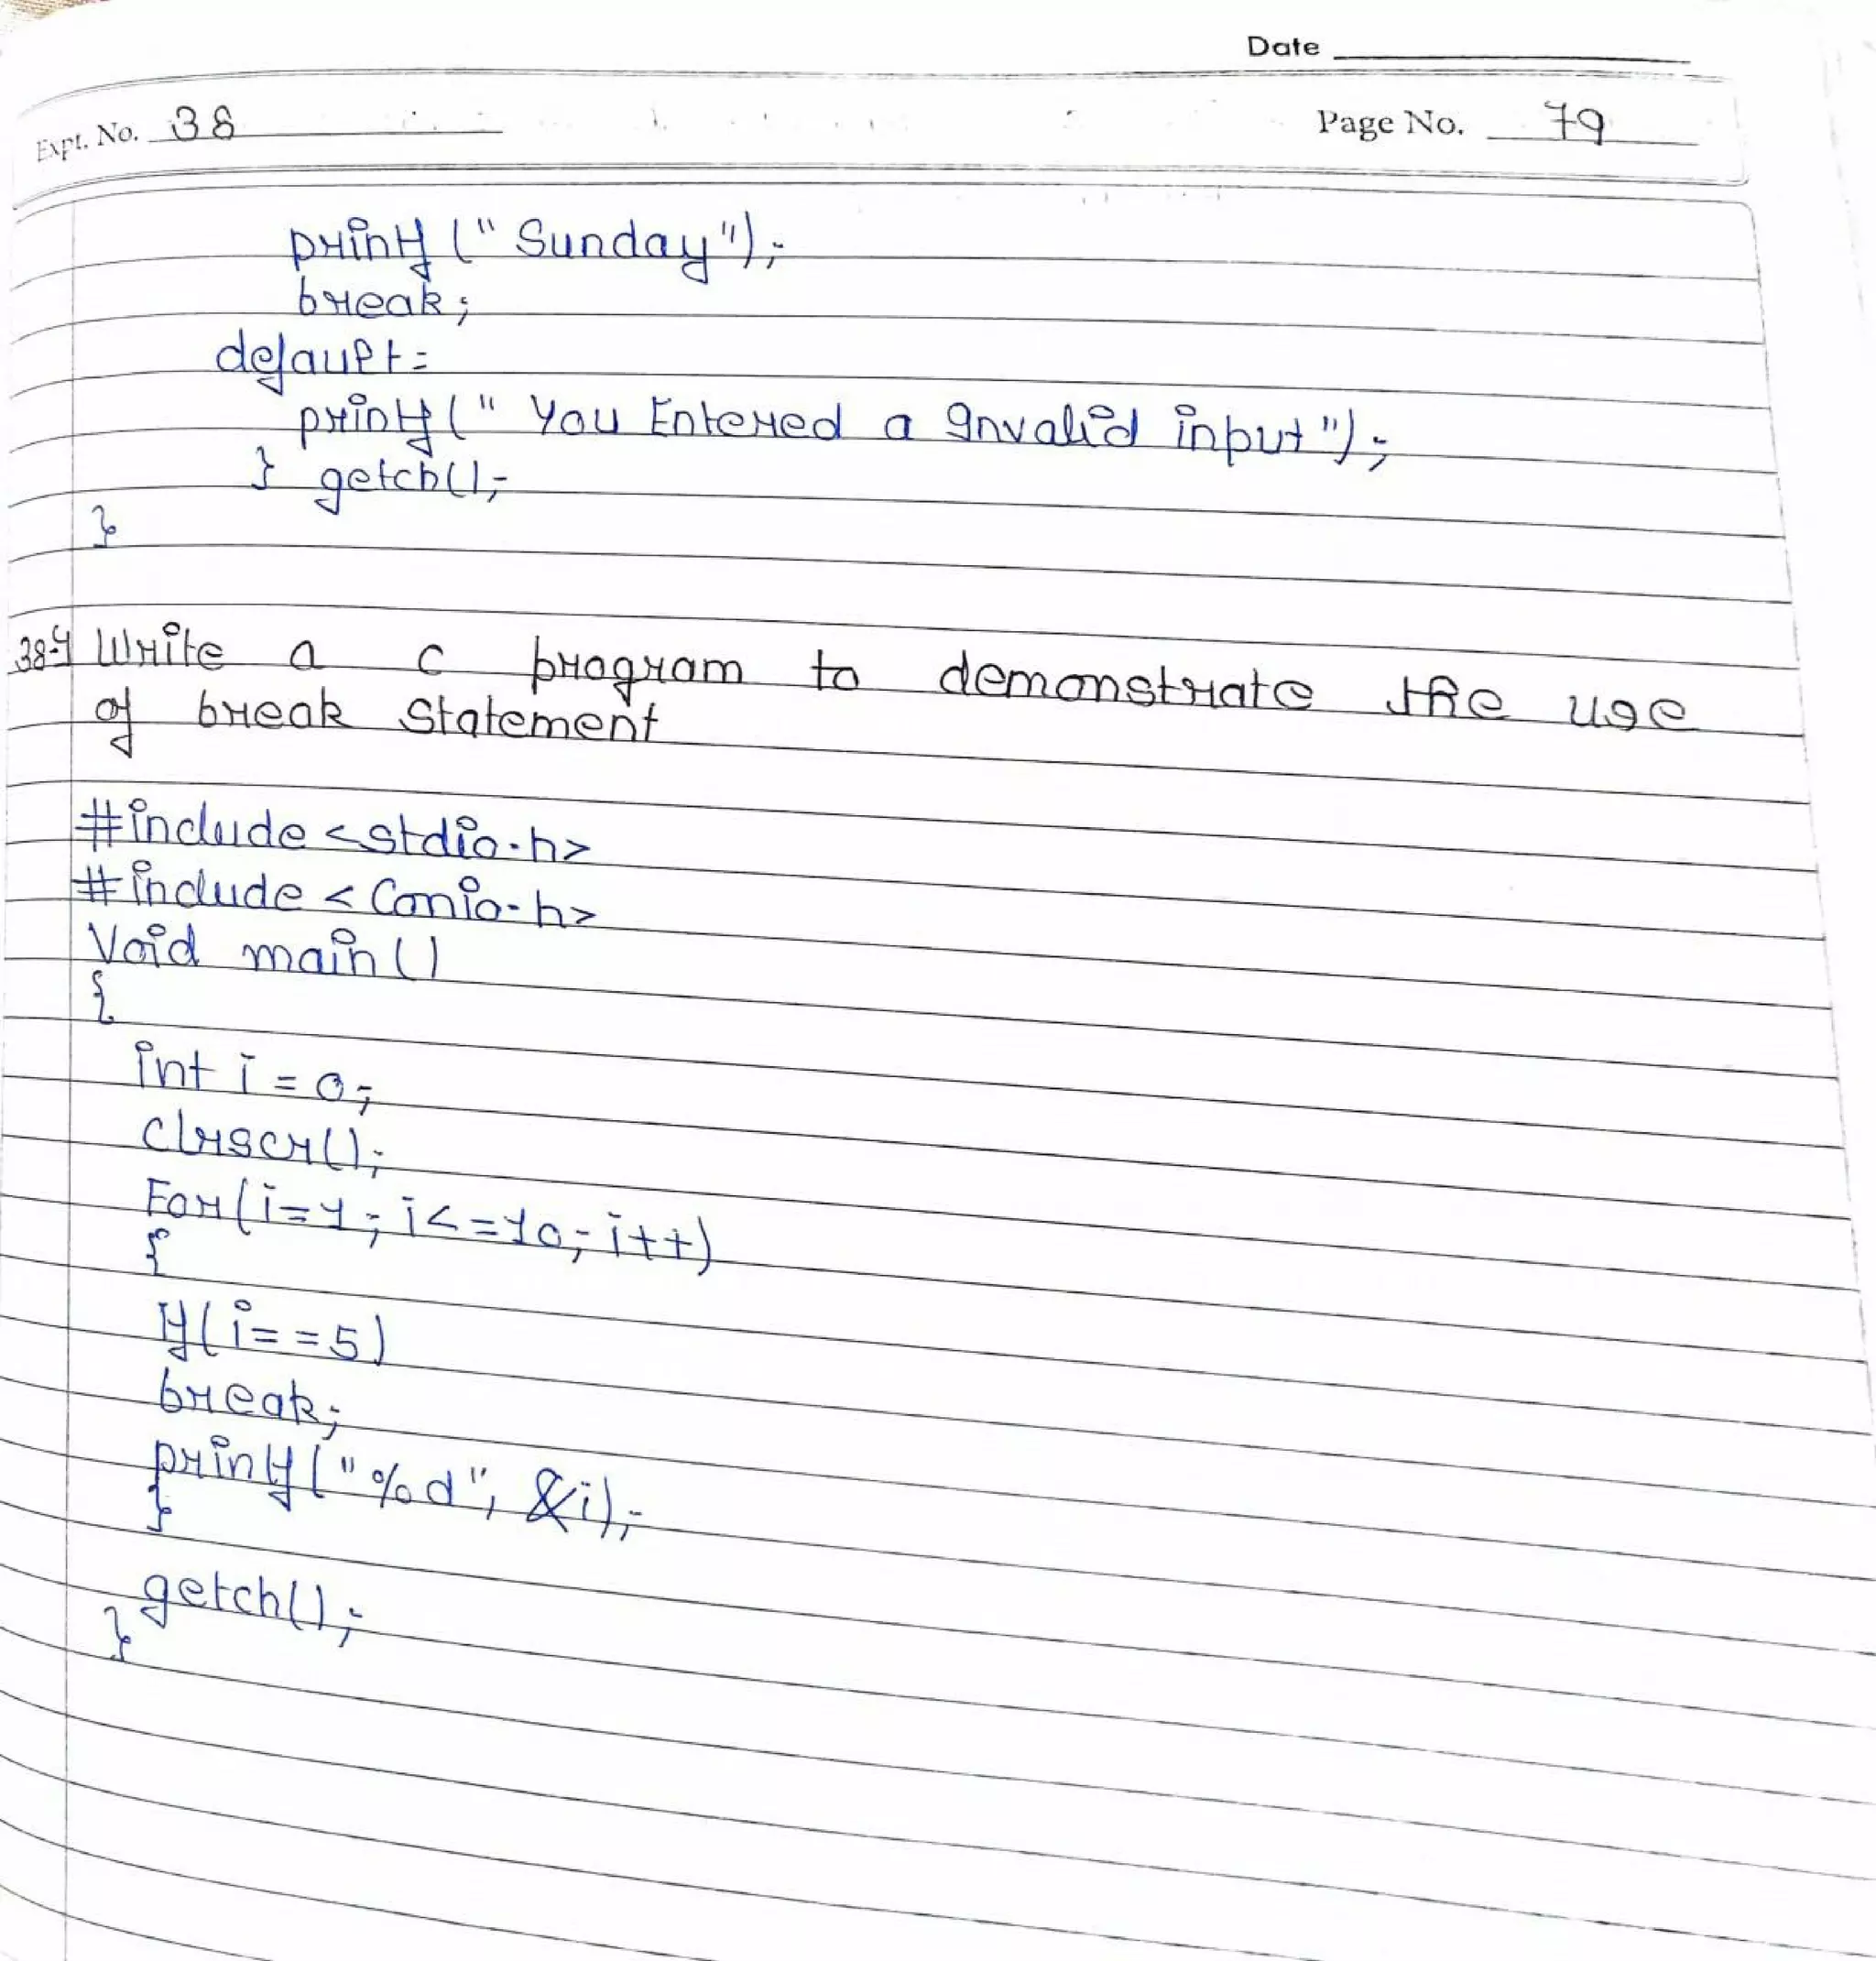 Date
Expt. No. 38
Page No. 79
printf (" Sunday");
break;
default:
printf (" You Entered a Invalid input");
} getch();
}
38:4 Write a c program to demonstrate the use
of break statement
#include <stdio.h>
#include < Conio.h>
Void main ()
{
int i = 0;
clrscr();
For(i=1; i<=10; i++)
{
If(i==5)
break;
printf("%d", &i);
}
getch();
}